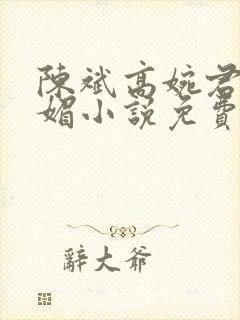 陳斌高婉君
媚小說免費
辭大爺